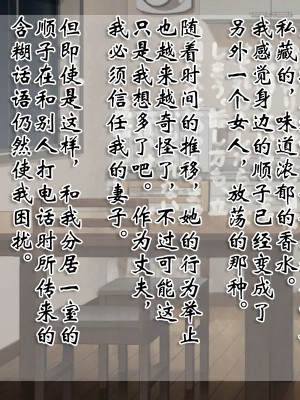 私藏的，味道浓郁的香水。
我感觉身边的顺子已经变成了
另外一个女人，放荡的那种。
随着时间的推移，她的行为举止
也越来越奇怪了，不过可能这
只是我想多了吧。作为丈夫，
我必须信任我的妻子。
但即使是这样，和我分居一室的
顺子在和别人打电话时所传来的
含糊话语仍然使我困扰。